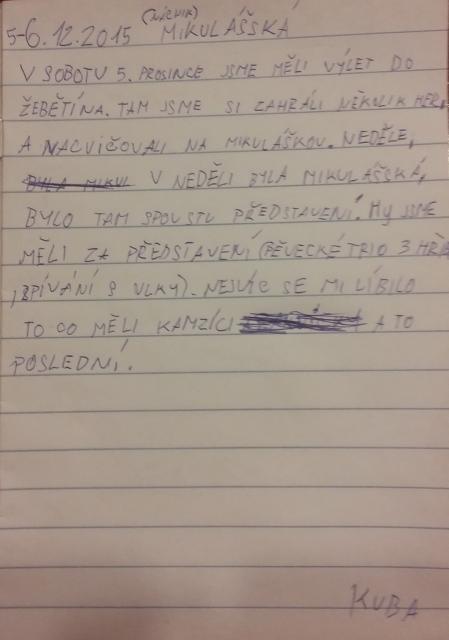 5-6.12.2015 MIKULÁŠSKÁ
V SOBOTU 5. PROSINCE JSME MĚLI VÝLET DO
ŽEBĚTÍNA. TAM JSME SI ZAHRÁLI NĚKOLIK HER,
A NACVIČOVALI NA MIKULÁŠKOU. NEDĚLE,
BYLA MIKUL V NEDĚLI BYLA MIKULÁŠSKÁ,
BYLO TAM SPOUSTU PŘEDSTAVENÍ. MY JSME
MĚLI ZA PŘEDSTAVENÍ (PĚVECKÉ TRIO 3 HŘÍ
, ZPÍVÁNÍ S VLKY). NEJVÍC SE MI LÍBILO
TO CO MĚLI KAMZÍCI A TO
POSLEDNÍ.
KUBA